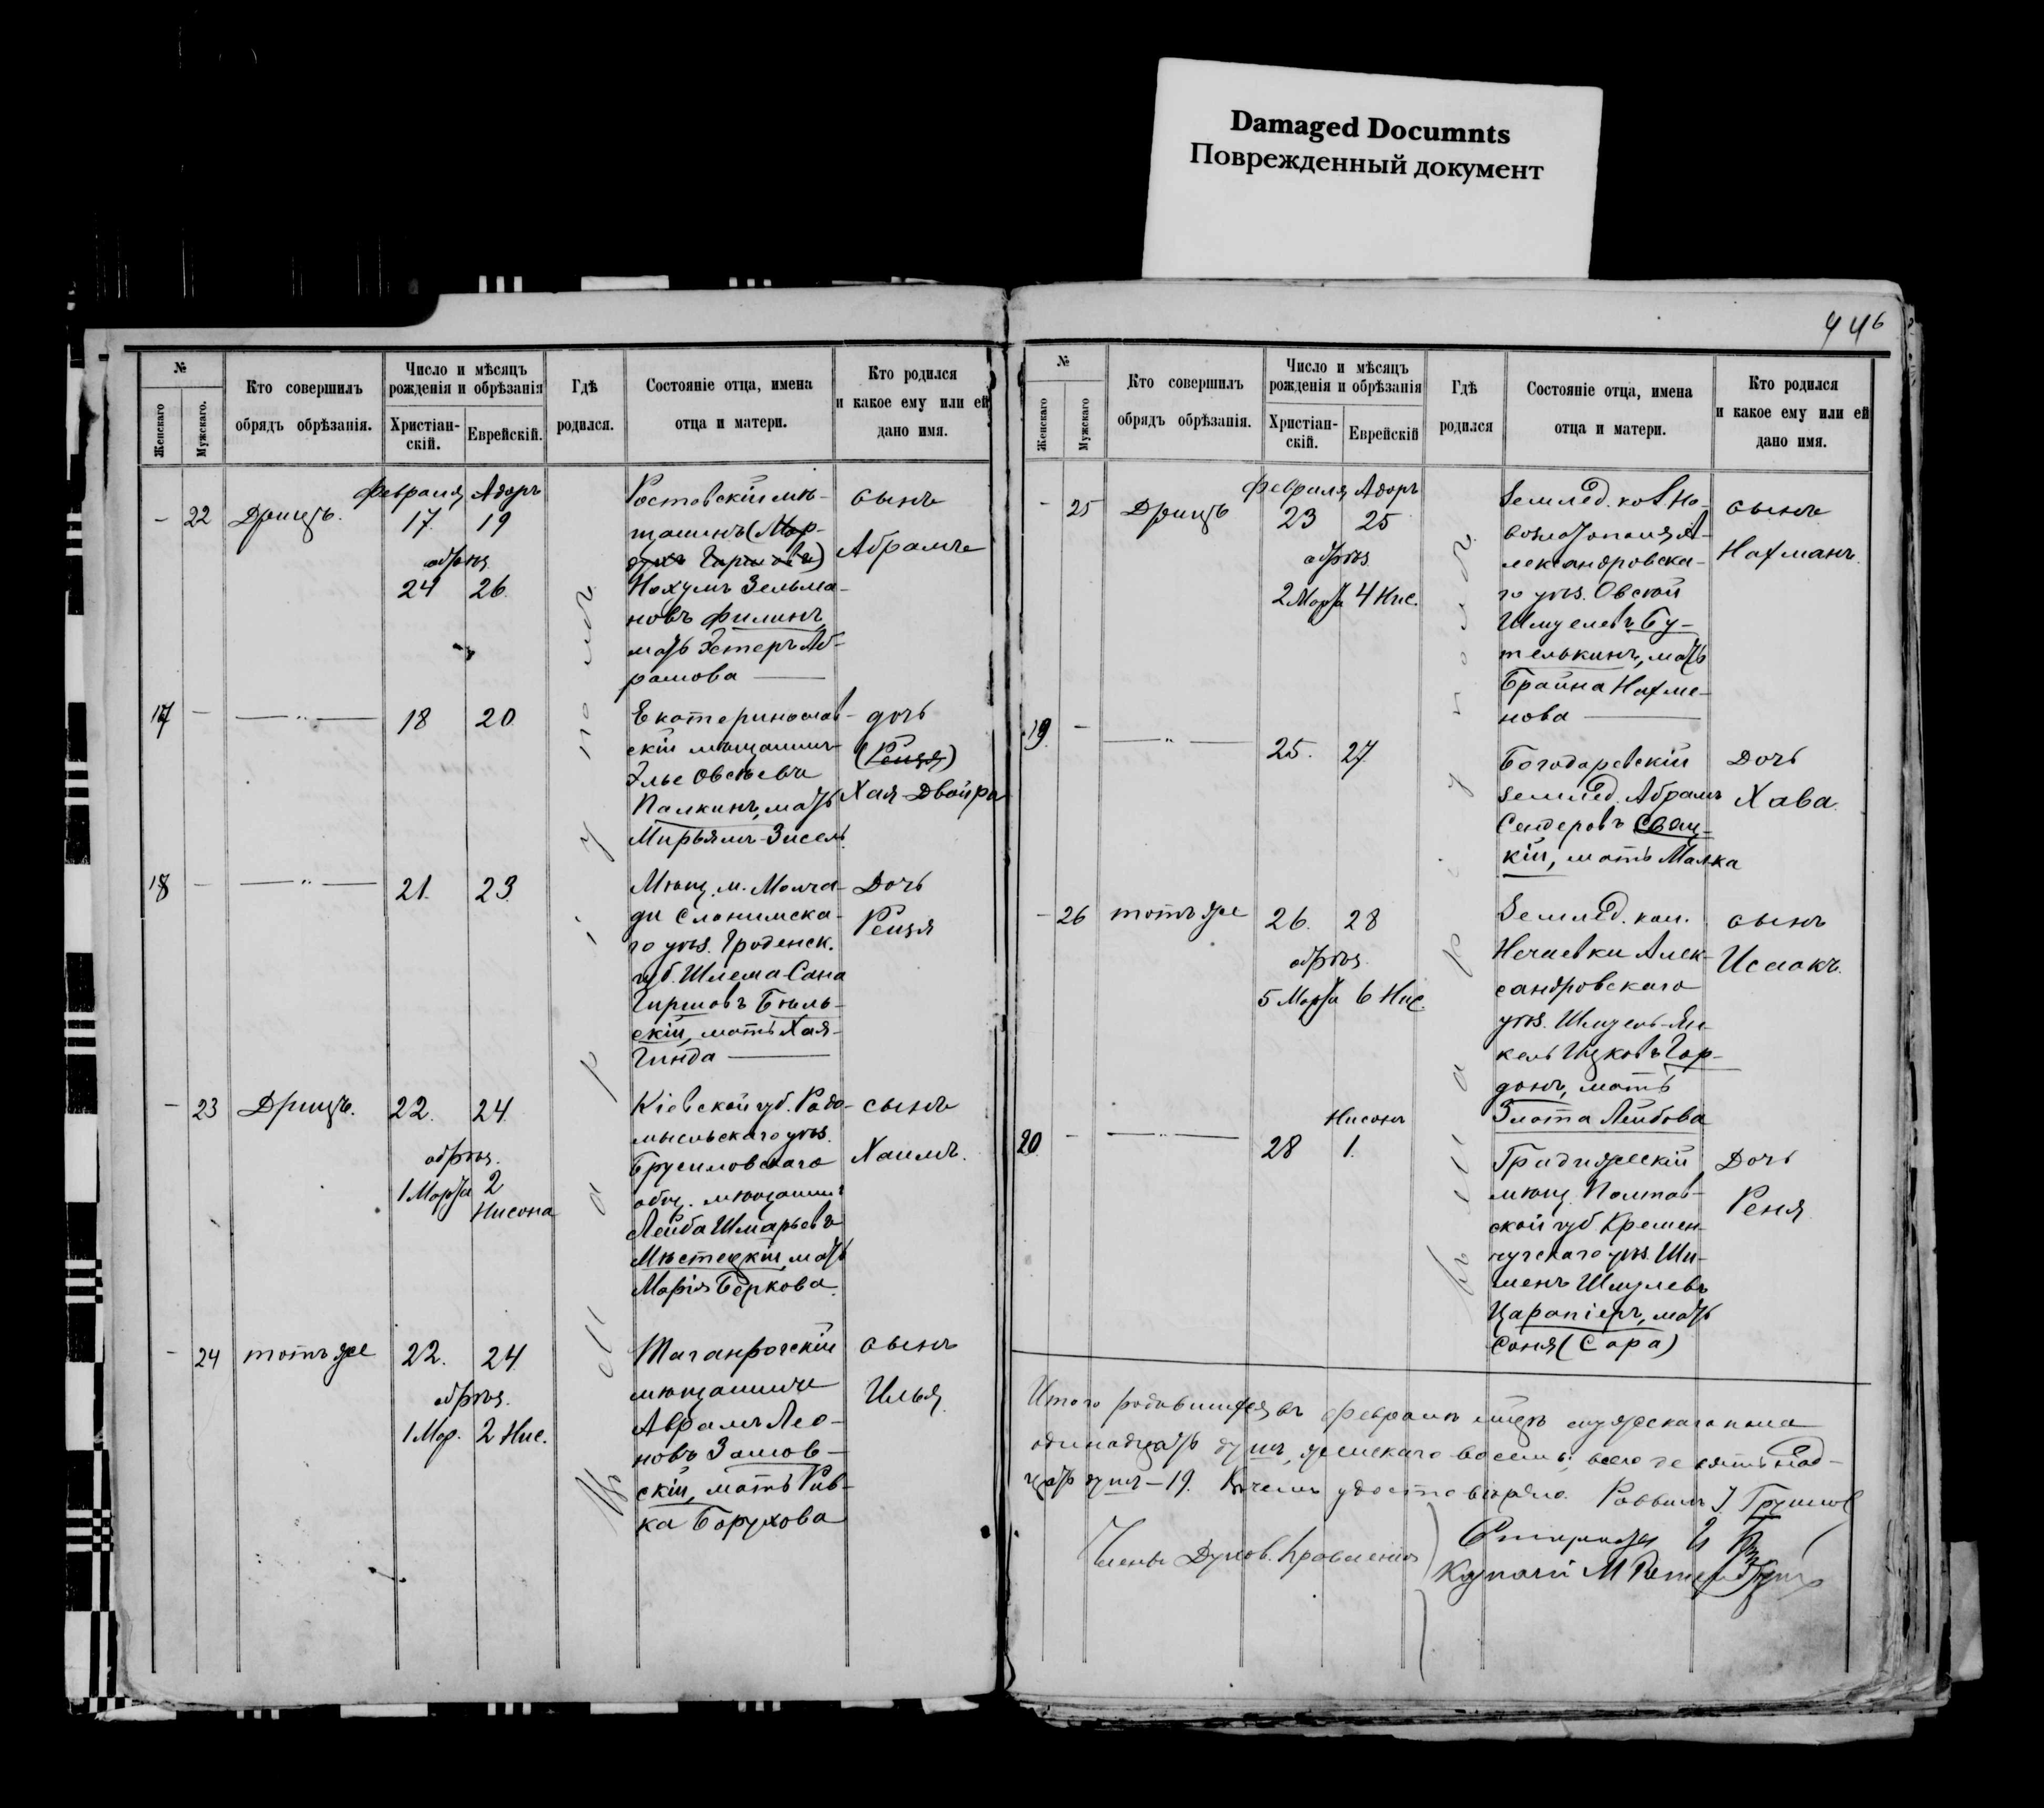 Damaged Documnts
Поврежденный документ
№
Женскаго
Мужскаго.
Кто совершилъ
обрядъ обрѣзанія.
Число и мѣсяцъ
рожденія и обрѣзанія
Христіан-
скій.
Еврейскій.
Гдѣ
родился.
Состояніе отца, имена
отца и матери.
Кто родился
и какое ему или ей
дано имя.
Маріуполь
– 22 Дрицъ.
Февраля Адоръ
17 19
обрѣз.
24 26.
Ростовскій мѣ-
щанинъ (Мор-
духъ Гиршовъ)
Нохумъ Зельма-
новъ Филинъ
мать Эстеръ Аб-
рамова
сынъ
Абрамъ
17 –
– „ –
18 20
Екатеринослав-
скій мѣщанинъ
Элье Овсѣевъ
Палкинъ, мать
Мирьямъ-Зисель
дочь
(Реция)
Хая-Двойра
18 –
– „ –
21. 23.
Мѣщ. м. Молча-
ди Слонимска-
го уѣз. Гроденск.
губ. Шлема-Сана
Гиршовъ Бѣль-
скій, мать Хая-
Гинда
Дочь
Реция
– 23 Дрицъ.
22. 24.
обрѣз.
1 Марта 2
Нисона
Кіевской губ. Радо-
мысльскаго уѣз.
Брусиловскаго
общ. мѣщанинъ
Лейба Шмарьевъ
Мѣстецкій, мать
Марія Беркова.
сынъ
Хаимъ.
– 24 тотъ же
22. 24.
обрѣз.
1 Мар. 2 Нис.
Таганрогскій
мѣщанинъ
Аврамъ Лео-
новъ Замов-
скій, мать Рив-
ка Борухова
сынъ
Илья
446
№
Женскаго
Мужскаго
Кто совершилъ
обрядъ обрѣзанія.
Число и мѣсяцъ
рожденія и обрѣзанія
Христіан-
скій.
Еврейскій
Гдѣ
родился
Состояніе отца, имена
отца и матери.
Кто родился
и какое ему или ей
дано имя.
Маріуполь
– 25 Дрицъ
Февраля Адоръ
23 25
обрѣз
2 Марта 4 Нис.
Землед. кол. Но-
возлатополя А-
лександровска-
го уѣз. Овсей
Шмуелевъ Бу-
телькинъ, мать
Брайна Нахме-
нова
сынъ
Нахманъ.
19. –
– „ –
25. 27.
Богодаревскій
землед. Абрамъ
Сендеровъ Свящ-
кій, мать Малка
Дочь
Хава.
– 26 тотъ же
26. 28
обрѣз.
5 Марта 6 Нис.
Землед. кол.
Нечаевки Алек-
сандровскаго
уѣз. Шмуель-Ян-
кель Ицковъ Гор-
донъ, мать
Злота Лейбова
сынъ
Исаакъ.
20. –
– „ –
Нисонъ
28 1.
Градижскій
мѣщ. Полтав-
ской губ. Кремен-
чугскаго уѣз. Ши-
менъ Шмулевъ
Царапіеръ, мать
Соня (Сара)
Дочь
Реня
Итого родившихся въ Февралѣ мѣсяцѣ мужскаго пола
одинадцать душъ, женскаго восемь, всего девятнад-
цать душъ – 19. Въ чемъ удостовѣряю. Раввинъ
Члены Духов. Правленія
Староста
Казначей М